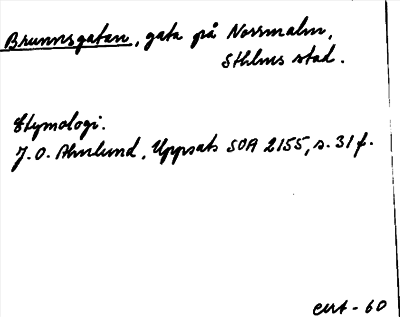 Brunnsgatan, gata på Norrmalm,
Sthlms stad.
Etymologi.
J. O. Ahnlund, Uppsats SOA 2155, s. 31 f.
cut-60